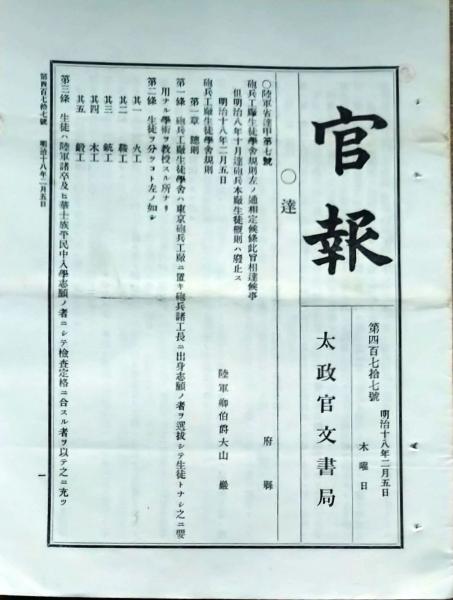 官報
第四百七拾七號
明治十八年二月五日
木曜日
太政官文書局
○達
○陸軍省達甲第七號
府縣
砲兵工廠生徒學舍規則左ノ通相定候條此旨相達候事
但明治八年十月達砲兵本廠生徒槪則ハ廢止ス
明治十八年二月五日
陸軍卿伯爵大山巖
砲兵工廠生徒學舍規則
第一章 總則
第一條 砲兵工廠生徒學舍ハ東京砲兵工廠ニ置キ砲兵諸工長ニ出身志願ノ者ヲ選拔シテ生徒トナシ之ニ要
用ナル學術ヲ敎授スル所ナリ
第二條 生徒ヲ分ツコト左ノ如シ
其一 火工
其二 鞍工
其三 銃工
其四 木工
其五 鍛工
第三條 生徒ハ陸軍諸卒及ヒ華士族平民中入學志願ノ者ニシテ檢査定格ニ合スル者ヲ以テ之ニ充ツ
第四百七拾七號 明治十八年二月五日
一